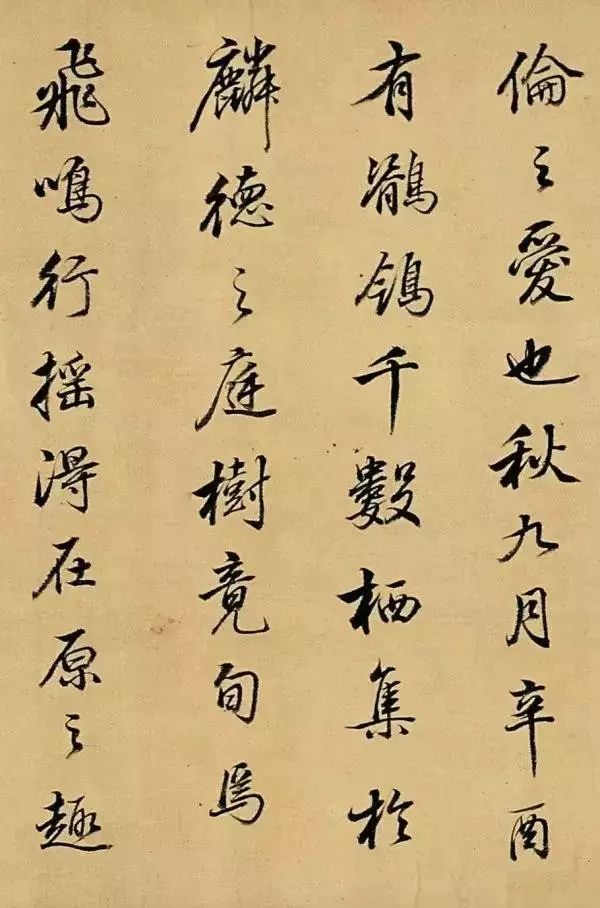 倫之愛也秋九月辛酉
有鶺鴒千數栖集於
麟德之庭樹竟旬焉
飛鳴行摇得在原之趣